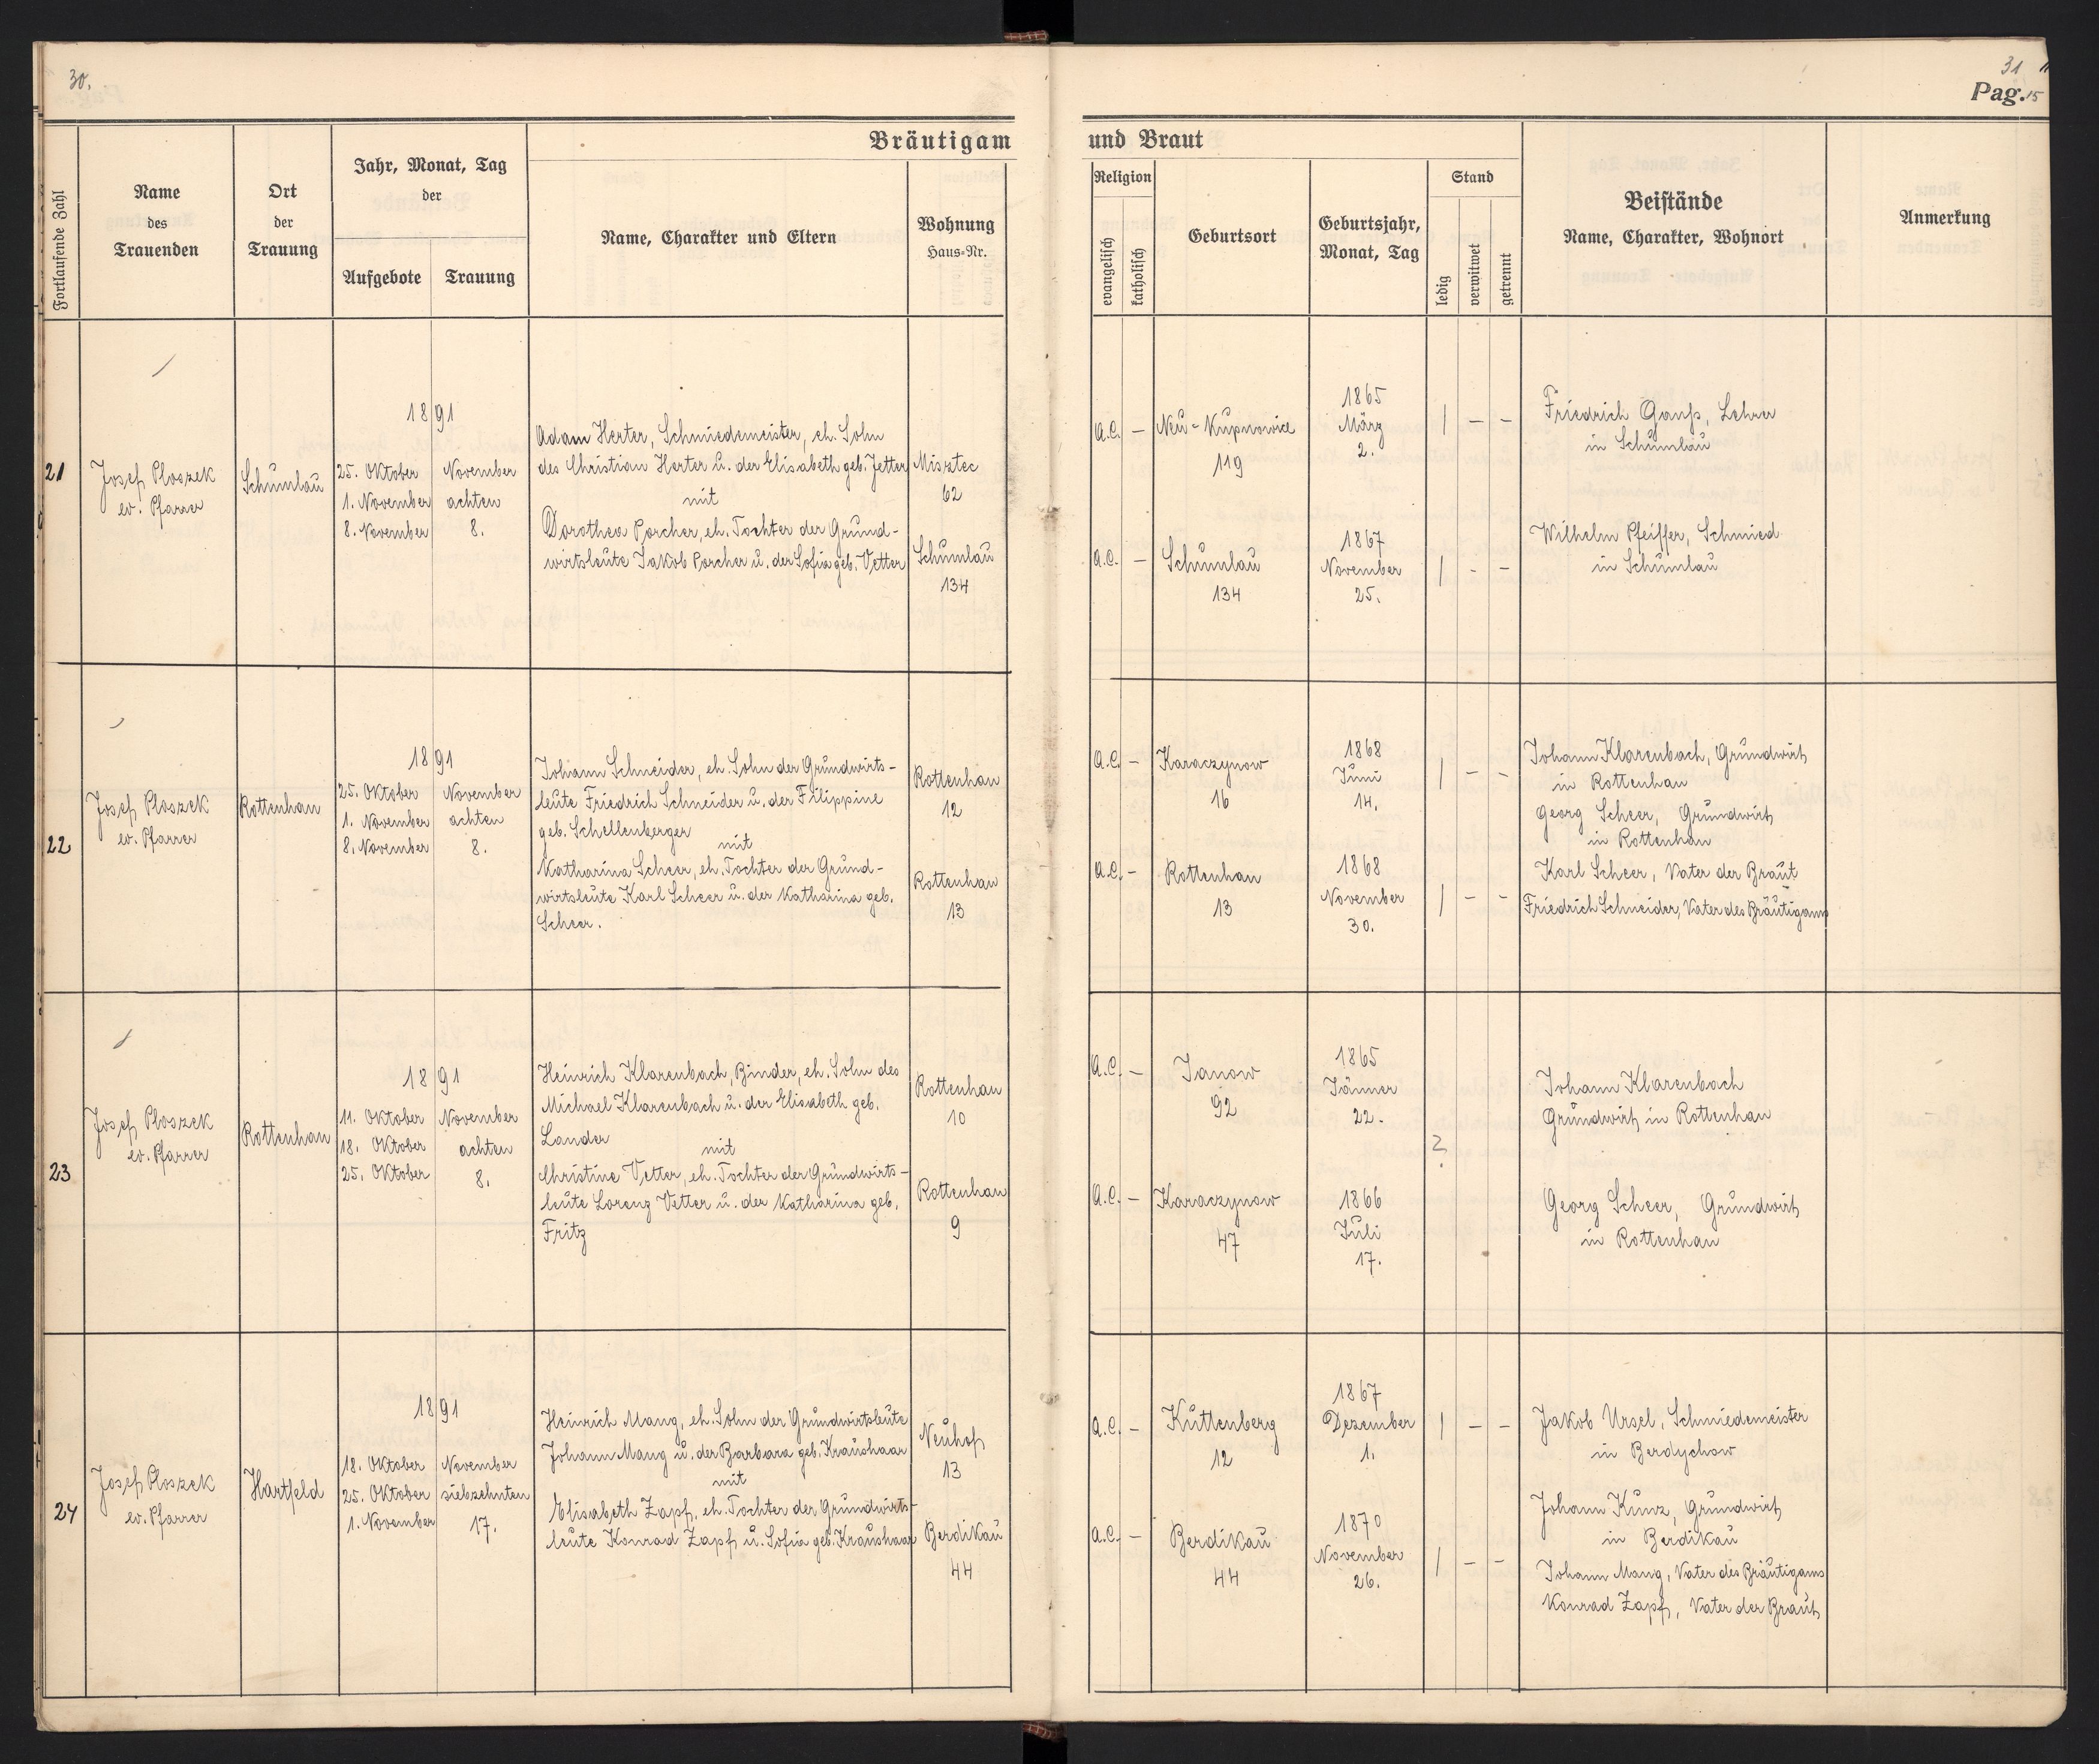 30.
31
Pag. 15
Bräutigam und Braut
Fortlaufende Zahl
Name
des
Trauenden
Ort
der
Trauung
Jahr, Monat, Tag
der
Aufgebote
Trauung
Name, Charakter und Eltern
Wohnung
Haus=Nr.
Religion
evangelisch
katholisch
Geburtsort
Geburtsjahr,
Monat, Tag
Stand
ledig
verwitwet
getrennt
Beistände
Name, Charakter, Wohnort
Anmerkung
21
Josef Ploszek
ev. Pfarrer
Schumlau
1891
25. Oktober
1. November
8. November
November
achten
8.
Adam Herter, Schmiedemeister, eh. Sohn
des Christian Herter u. der Elisabeth geb. Jetter
mit
Dorothea Porcher, eh. Tochter der Grund-
wirtsleute Jakob Porcher u. der Sofia geb. Vetter
Misztec
62
Schumlau
134
A.C. —
Neu-Kupnowice
119
1865
März
2.
| - -
A.C. —
Schumlau
134
1867
November
25.
| - -
Friedrich Ganß, Lehrer
in Schumlau
Wilhelm Pfeiffer, Schmied
in Schumlau
22
Josef Ploszek
ev. Pfarrer
Rottenhan
1891
25. Oktober
1. November
8. November
November
achten
8.
Johann Schneider, eh. Sohn der Grundwirts-
leute Friedrich Schneider u. der Filippine
geb. Schellenberger
mit
Katharina Scheer, eh. Tochter der Grund-
wirtsleute Karl Scheer u. der Katharina geb.
Scheer.
Rottenhan
12
Rottenhan
13
A.C. —
Karaczynow
16
1868
Juni
14.
| - -
A.C. —
Rottenhan
13
1868
November
30.
| - -
Johann Klarenbach, Grundwirt
in Rottenhan
Georg Scheer, Grundwirt
in Rottenhan
Karl Scheer, Vater der Braut
Friedrich Schneider, Vater des Bräutigams
23
Josef Ploszek
ev. Pfarrer
Rottenhan
1891
11. Oktober
18. Oktober
25. Oktober
November
achten
8.
Heinrich Klarenbach, Binder, eh. Sohn des
Michael Klarenbach u. der Elisabeth geb.
Lander
mit
Christine Vetter, eh. Tochter der Grundwirts-
leute Lorenz Vetter u. der Katharina geb.
Fritz
Rottenhan
10
Rottenhan
9
A.C. —
Janow
92
1865
Jänner
22.
?
A.C. —
Karaczynow
47
1866
Juli
17.
Johann Klarenbach
Grundwirt in Rottenhan
Georg Scheer, Grundwirt
in Rottenhan
24
Josef Ploszek
ev. Pfarrer
Hartfeld
1891
18. Oktober
25. Oktober
1. November
November
siebzehnten
17.
Heinrich Mang, eh. Sohn der Grundwirtsleute
Johann Mang u. der Barbara geb. Kraushaar
mit
Elisabeth Zapf, eh. Tochter der Grundwirts-
leute Konrad Zapf u. Sofia geb. Kraushaar
Neuhof
13
Berdikau
44
A.C. —
Kuttenberg
12
1867
Dezember
1.
| - -
A.C. —
Berdikau
44
1870
November
26.
| - -
Jakob Ursel, Schmiedemeister
in Berdychow
Johann Kunz, Grundwirt
in Berdikau
Johann Mang, Vater des Bräutigams
Konrad Zapf, Vater der Braut